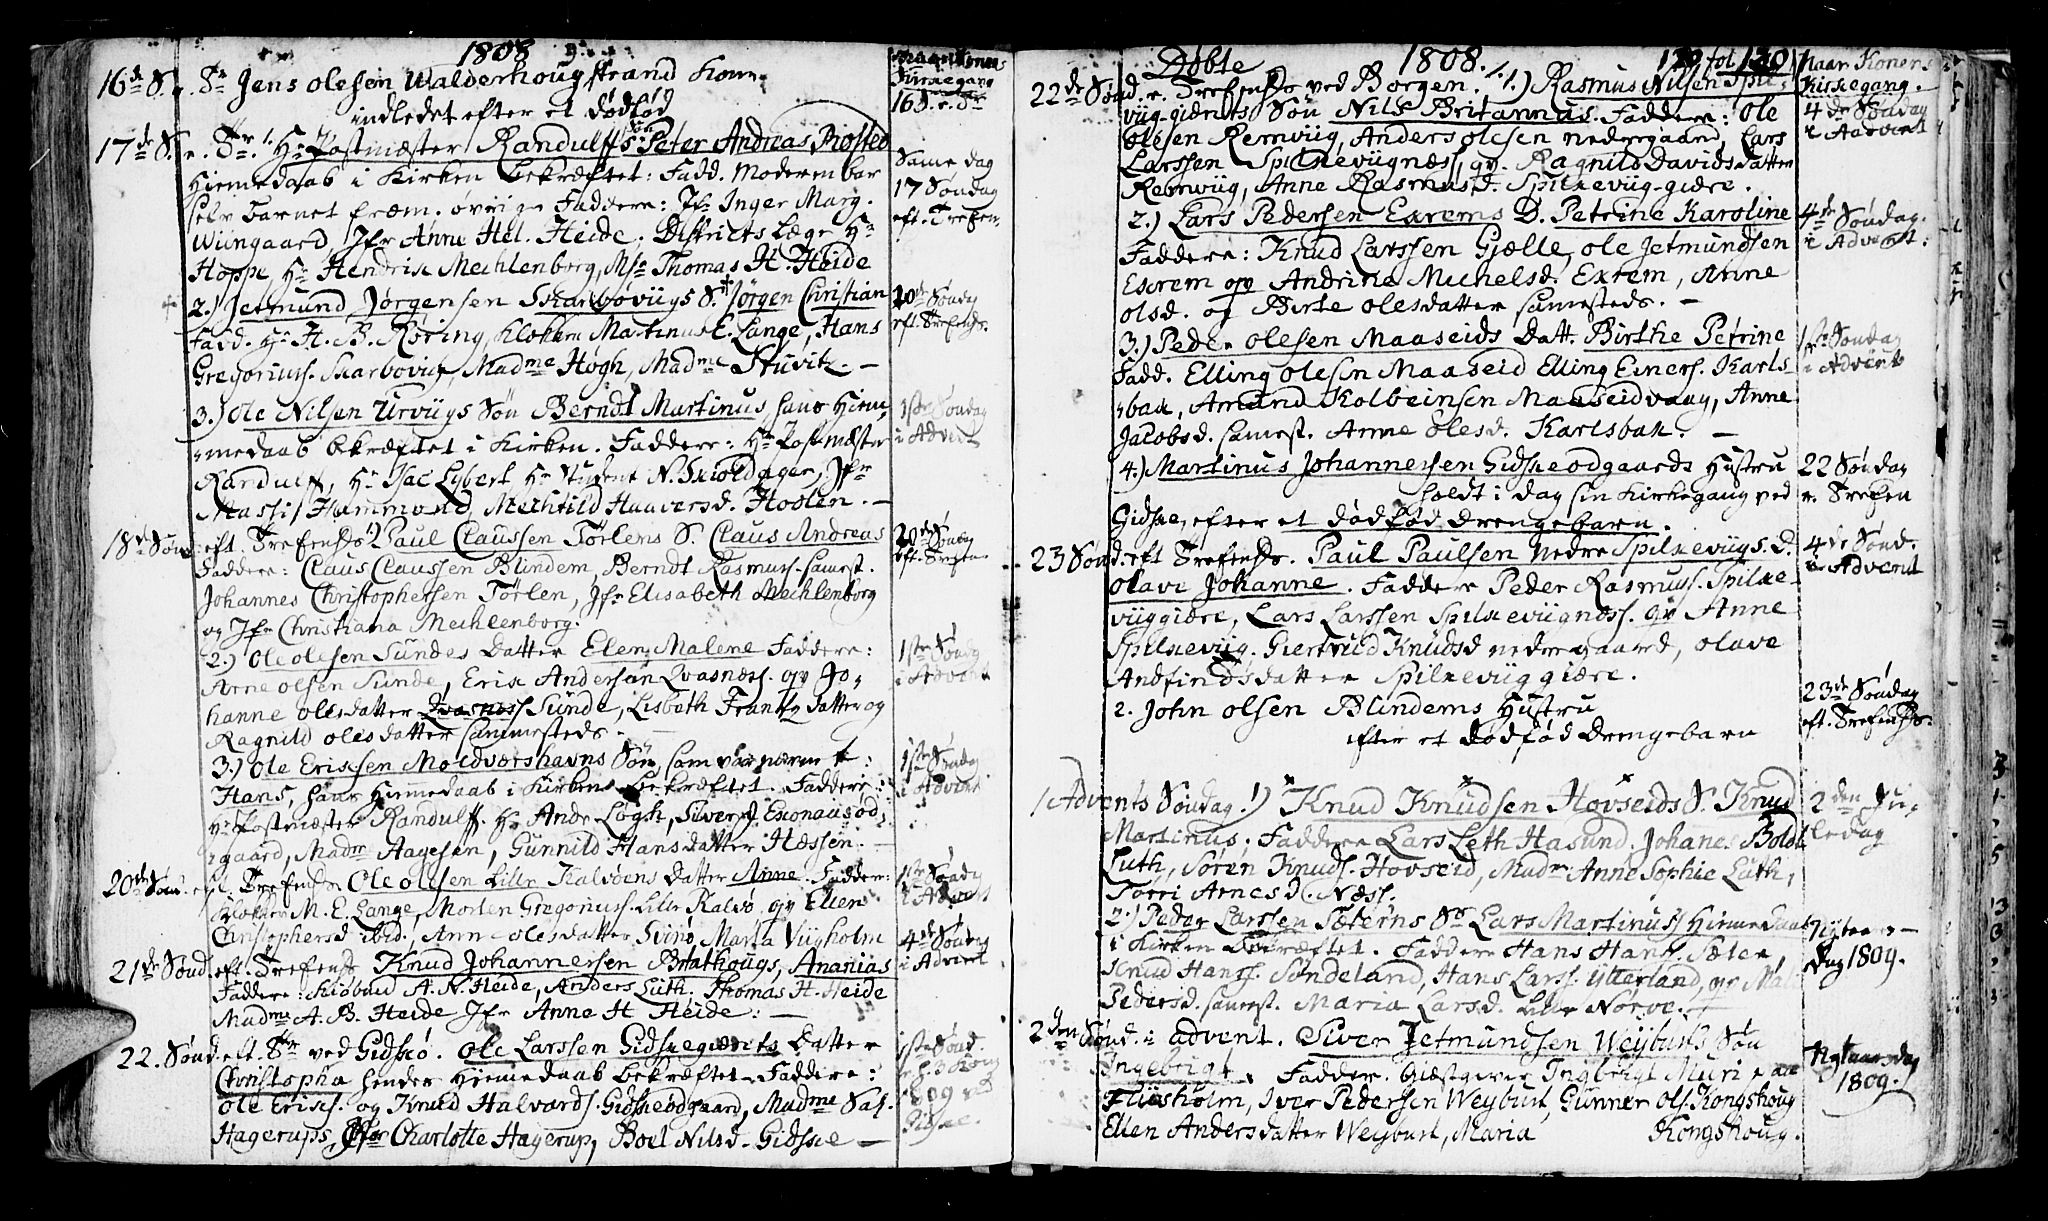 1808
16de S. e. Tr Jens Olesen Walderhougstrand Kone
indledet efter et dødfød
17de S. e. Tr. 1. Hr Postmæster Randulffs Søn Peter Andreas
Hiemedaab i Kirken bekræftet: Fadd. Moderen bar
selv barnet frem. øvrige Faddere: Jfr Inger Marg.
Wiingaard, Jfr Anne Hel. Heide. Districts Læge Hr
Hoppe Hr Hendrik Mechlenborg, Msr Thomas H. Heide
2.) Jetmund Jørgensen Skarbøviigs S. Jørgen Christian
Fadd. Hr H. B. Røring, Klokker Martinus E. Lange, Hans
Gregoriuss. Skarbøvig, Madme Høgh, Madme Stuvitz. —
3.) Ole Nilsen Urviigs Søn Berndt Martinus, hans Hiem-
medaab bekræftet i Kirken. Faddere: Hr Postmæster
Randulff, Hr Isac Lybert Hr Student N. Skioldager, Jfr
Massi Hammond, Mechtild Haaversd. Hoolen. —
18de Sønd. eft. Trefends 1) Paul Claussen Tørlens S. Claus Andreas
Faddere: Claus Claussen Blindem, Berndt Rasmuss. samest.
Johannes Christophersen Tørlen, Jfr Elisabeth Mechlenborg
og Jfr Christiana Mechlenborg.
2.) Ole Olesen Sundes Datter Elen Malene Faddere:
Arne Olsen Sunde, Erik Andersøn Qvasnæss. qv Jo-
hanne Olesdatter Sunde, Lisbeth Frantzdatter og
Ragnild Olesdatter sammesteds. —
3.) Ole Eriksen Moldværshavns Søn, som var nævnt:
Hans, hans Hiemedaab i Kirken bekræftet. Faddere:
Hr Postmæster Randulff. Hr Ande Løgh, Siver Esionausød-
gaard, Madm Aagesen, Gunnild Hansdatter Hæssen. —
20de Sønd. eft. Trefends Ole Olesen Lille Kalvøens Datter Anne. Fadder:
Klokker M. E. Lange, Morten Gregoriuss. Lille Kalvø, qv Ellen
Christophersd ibid., Ann Olesdatter Svinø Maria Viigholm
21de Sønd. eft. Trefends Knud Johannersen Brathougs, Ananias
Faddere: Kiøbmd A. N. Heide, Anders Luth. Thomas H. Heide
Madme A. B. Heide Jfr Anne H Heide: —
22. Sønd. eft. Tr ved Gidskø. Ole Larssen Gidskegiærits Datter
Christopha hendes Hiemedaab bekræftet. Faddere:
Ole Eriks. og Knud Halvards. Gidskeødgaard, Madme Sal.
Hagerups, Jfr Charlotte Hagerup, Boel Nilsd. Gidske —
Kirkegang
16 S. e. Tr
Same dag
17 Søndag
eft. Trefen.
20de Søndg
eft. Trefends.
1ste Søndag
i Advent
20de Søndg
eft. Trefen.
1ste Søndg
i Advent
1ste Søndag
i Advent
1ste Søndg
i Advent
4de Søndg
i Advent
1ste Sønd.
1809 ved
Gidske.
Døbte 1808. 129 fol 130
22de Sønd. e. Trefends ved Borgen. 1) Rasmus Nilsen Spil-
viig-giærits Søn Nils Britannus. Faddere: Ole
Olesen Remviig, Anders Olesen nedregaard, Lars
Larssen Spilkeviignæss, qv. Ragnild Davidsdatter
Remviig, Anne Rasmusd. Spilkeviig-giære.
2.) Lars Pedersen Exrems D. Petrine Karoline
Faddere: Knud Larssen Gjælle, Ole Jetmundsen
Exrem qv Andrine Michelsd. Exrem, Anne
Olsd. og Birte Olesdatter samesteds. —
3.) Peder Olesen Maaseids Datt. Birthe Petrine
Fadd. Elling Olesen Maaseid Elling Einers. Karls-
bak, Amund Kolbeinsen Maaseidvaag, Anne
Jacobsd. samest. Anne Olesd. Karlsbak. —
4.) Martinus Johannersen Gidskeødgaards Hustru
holdt i dag sin Kirkegang ved
Gidske, efter et dødfød drengebarn.
23 Sønd. eft Trefends. Paul Paulsen nedre Spilkeviigs. D.
Olave Johanne. Faddere Peder Rasmuss. Spilke-
viiggiære, Lars Larssen Spilkeviignæss. qv Anne
Spilkeviig. Giertrud Knudsd nedregaard, Olave
Andfindsdatter Spilkeviiggiære.
2. John Olsen Blindems Hustru
efter et dødfød drengebarn
1 Advents Søndag. 1) Knud Knudsen Hovseids S. Knud
Martinus. Faddere Lars Leth Hasund. Johanes Boldt
Luth, Søren Knuds. Hovseid, Madm Anne Sophie Luth,
Torri Arnesd. Næss.
2.) Peder Larssen Sæterns Sø Lars Martinus, Hiemedaab
i Kirken bekræftet. Faddere Hans Hans. Sæter
Knud Hans. Sundeland, Hans Larss. Ytterland, qv
Pedersd. samest. Maria Larsd. Lille Norve. —
2den Sønd. i Advent. Siver Jetmundsen Weybusts Søn
Ingebrigt. Faddere. Giæstgiver Ingbrigt Muri paa
Fliisholm, Iver Pedersen Weybust, Gunner Ols. Kongshoug
Ellen Andersdatter Weybust, Maria Kongshoug.
Naar Konen
Kirkegang.
4de Søndag
i Advent
4de Søndag.
i Advent:
1ste Søndag
i Advent
22 Søndag
e. Trefen
4de Sønd.
i Advent
23de Søndag
eft. Trefends.
2den Ju-
ledag
Nytaars-
Dag 1809.
Nytaarsdag
1809.